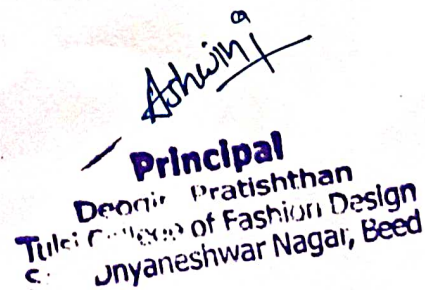 Ashwini
Principal
Deogiri Pratishthan
Tulsi College of Fashion Design
Dnyaneshwar Nagar, Beed